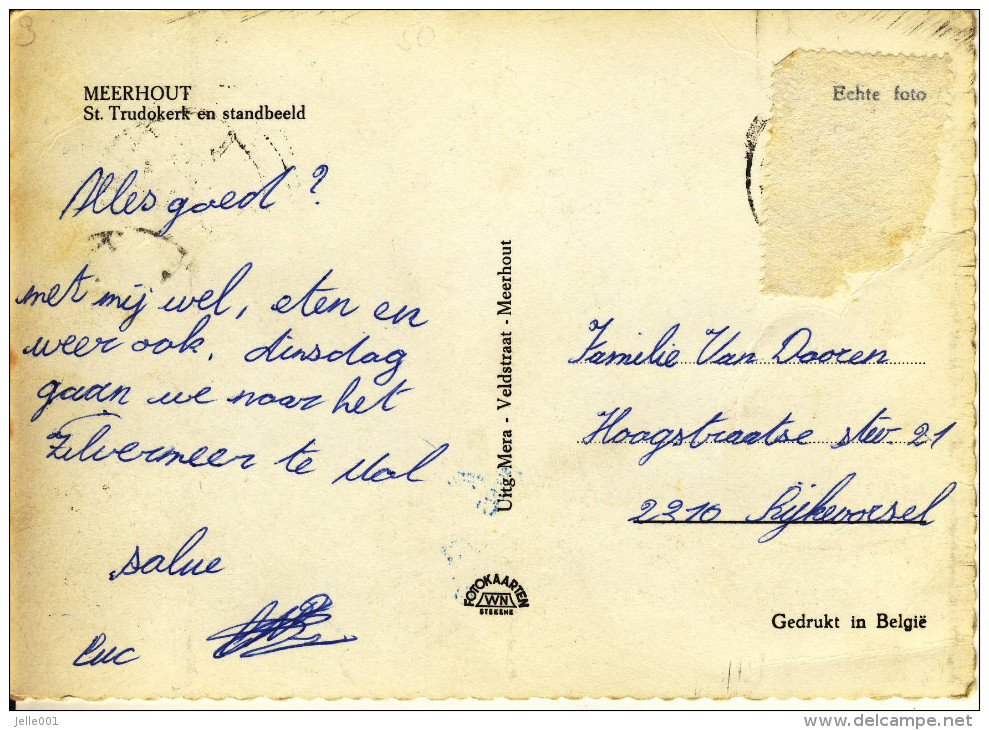 MEERHOUT
St. Trudokerk en standbeeld
Echte foto
Alles goed?
met mij wel, eten en
weer ook, dinsdag
gaan we naar het
Zilvermeer te Mol
salue
Luc
Uitg. Mera - Veldstraat - Meerhout
FOTOKAARTEN
WN
STEKENE
Familie Van Dooren
Hoogstraatse stw. 21
2310 Rijkevorsel
Gedrukt in België
jelle001
delcampe.net